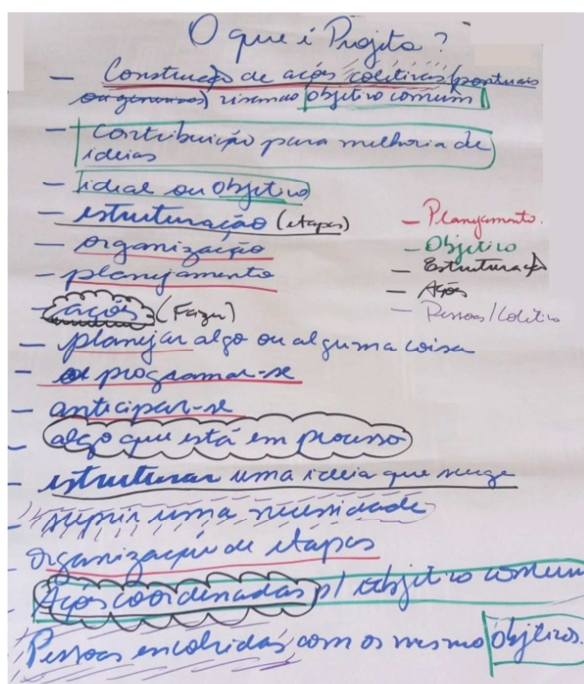 O que é Projeto?
— Construção de ações coletivas (pontuais
ou generosos) visando objetivo comum
— contribuição para melhoria de
ideias
— ideal ou objetivo
— estruturação (etapas)
— organização
— planejamento
— ações (Fazer)
— planejar algo ou alguma coisa
— programar-se
— anticipar-se
— algo que está em processo
— estruturar uma ideia que surge
— suprir uma necessidade
— organização de etapas
— Ações coordenadas p/ objetivo comum
— Pessoas envolvidas com os mesmo objetivos.
— Planejamento.
— Objetivo
— Estruturação
— Ações
— Pessoas/Coletivo